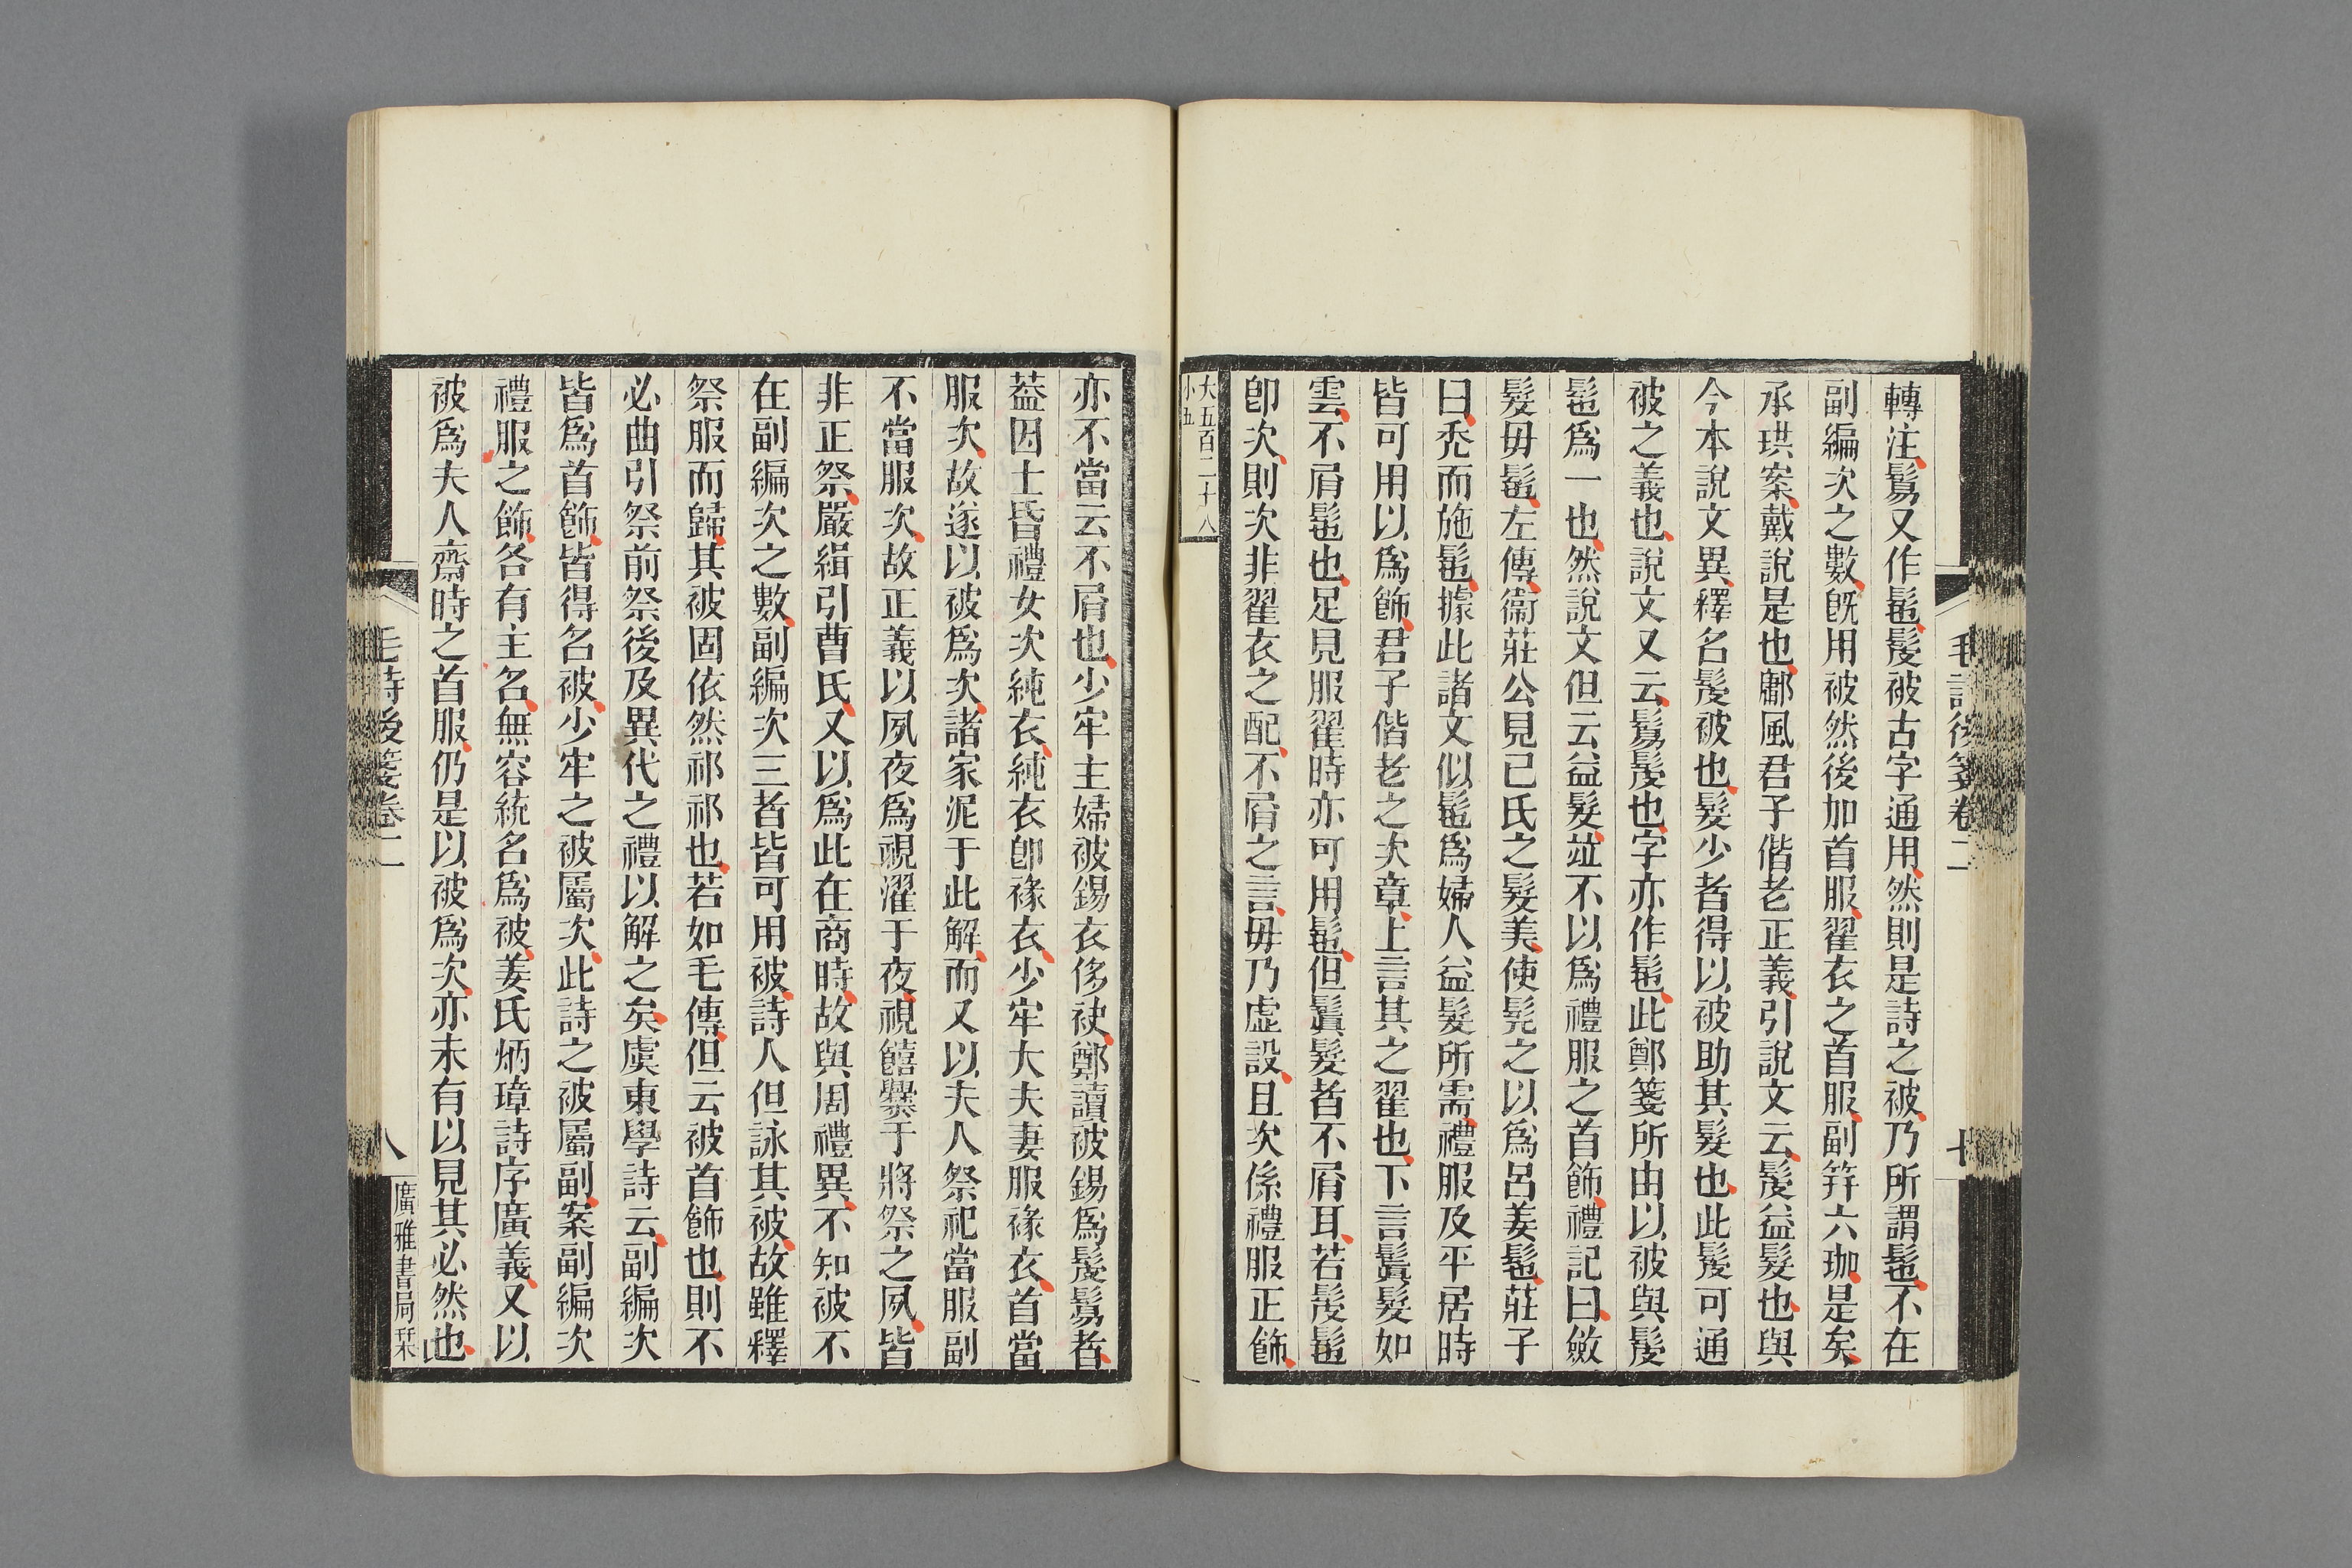 毛詩後箋卷二
轉注鬄又作髢髲被古字通用然則是詩之被乃所謂髢不在
副編次之數旣用被然後加首服翟衣之首服副笄六珈是矣
承珙案戴說是也鄘風君子偕老正義引說文云髲益髮也與
今本說文異釋名髲被也髮少者得以被助其髮也此髲可通
被之義也說文又云鬄髲也字亦作髢此鄭箋所由以被與髲
髢爲一也然說文但云益髮竝不以爲禮服之首飾禮記曰斂
髮毋髢左傳衞莊公見己氏之髮美使髠之以爲呂姜髢莊子
曰禿而施髢據此諸文似髢爲婦人益髮所需禮服及平居時
皆可用以爲飾君子偕老之次章上言其之翟也下言鬒髮如
雲不屑髢也足見服翟時亦可用髢但鬒髮者不屑耳若髲髢
卽次則次非翟衣之配不屑之言毋乃虛設且次係禮服正飾
大五百二十八
小五
亦不當云不屑也少牢主婦被錫衣侈袂鄭讀被錫爲髲鬄者
葢因士昏禮女次純衣純衣卽褖衣少牢大夫妻服褖衣首當
服次故遂以被爲次諸家泥于此解而又以夫人祭祀當服副
不當服次故正義以夙夜爲視濯于夜視饎爨于將祭之夙皆
非正祭嚴緝引曹氏又以爲此在商時故與周禮異不知被不
在副編次之數副編次三者皆可用被詩人但詠其被故雖釋
祭服而歸其被固依然祁祁也若如毛傳但云被首飾也則不
必曲引祭前祭後及異代之禮以解之矣虞東學詩云副編次
皆爲首飾皆得名被少牢之被屬次此詩之被屬副案副編次
禮服之飾各有主名無容統名爲被姜氏炳璋詩序廣義又以
被爲夫人齋時之首服仍是以被爲次亦未有以見其必然也
毛詩後箋卷二
八
廣雅書局栞